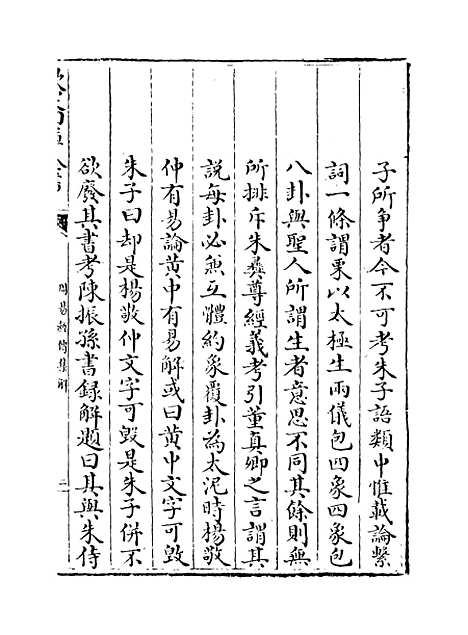 子所争者今不可考朱子語類中惟載論繫
詞一條謂栗以太極生兩儀包四象四象包
八卦與聖人所謂生者意思不同其餘則無
所排斥朱彝尊經義考引董真卿之言謂其
說每卦必兼互體約象覆卦為太泥時楊敬
仲有易論黄中有易解或曰黄中文字可毁
朱子曰却是楊敬仲文字可毁是朱子併不
欲廢其書考陳振孫書録解題曰其與朱侍
周易經傳集解
二